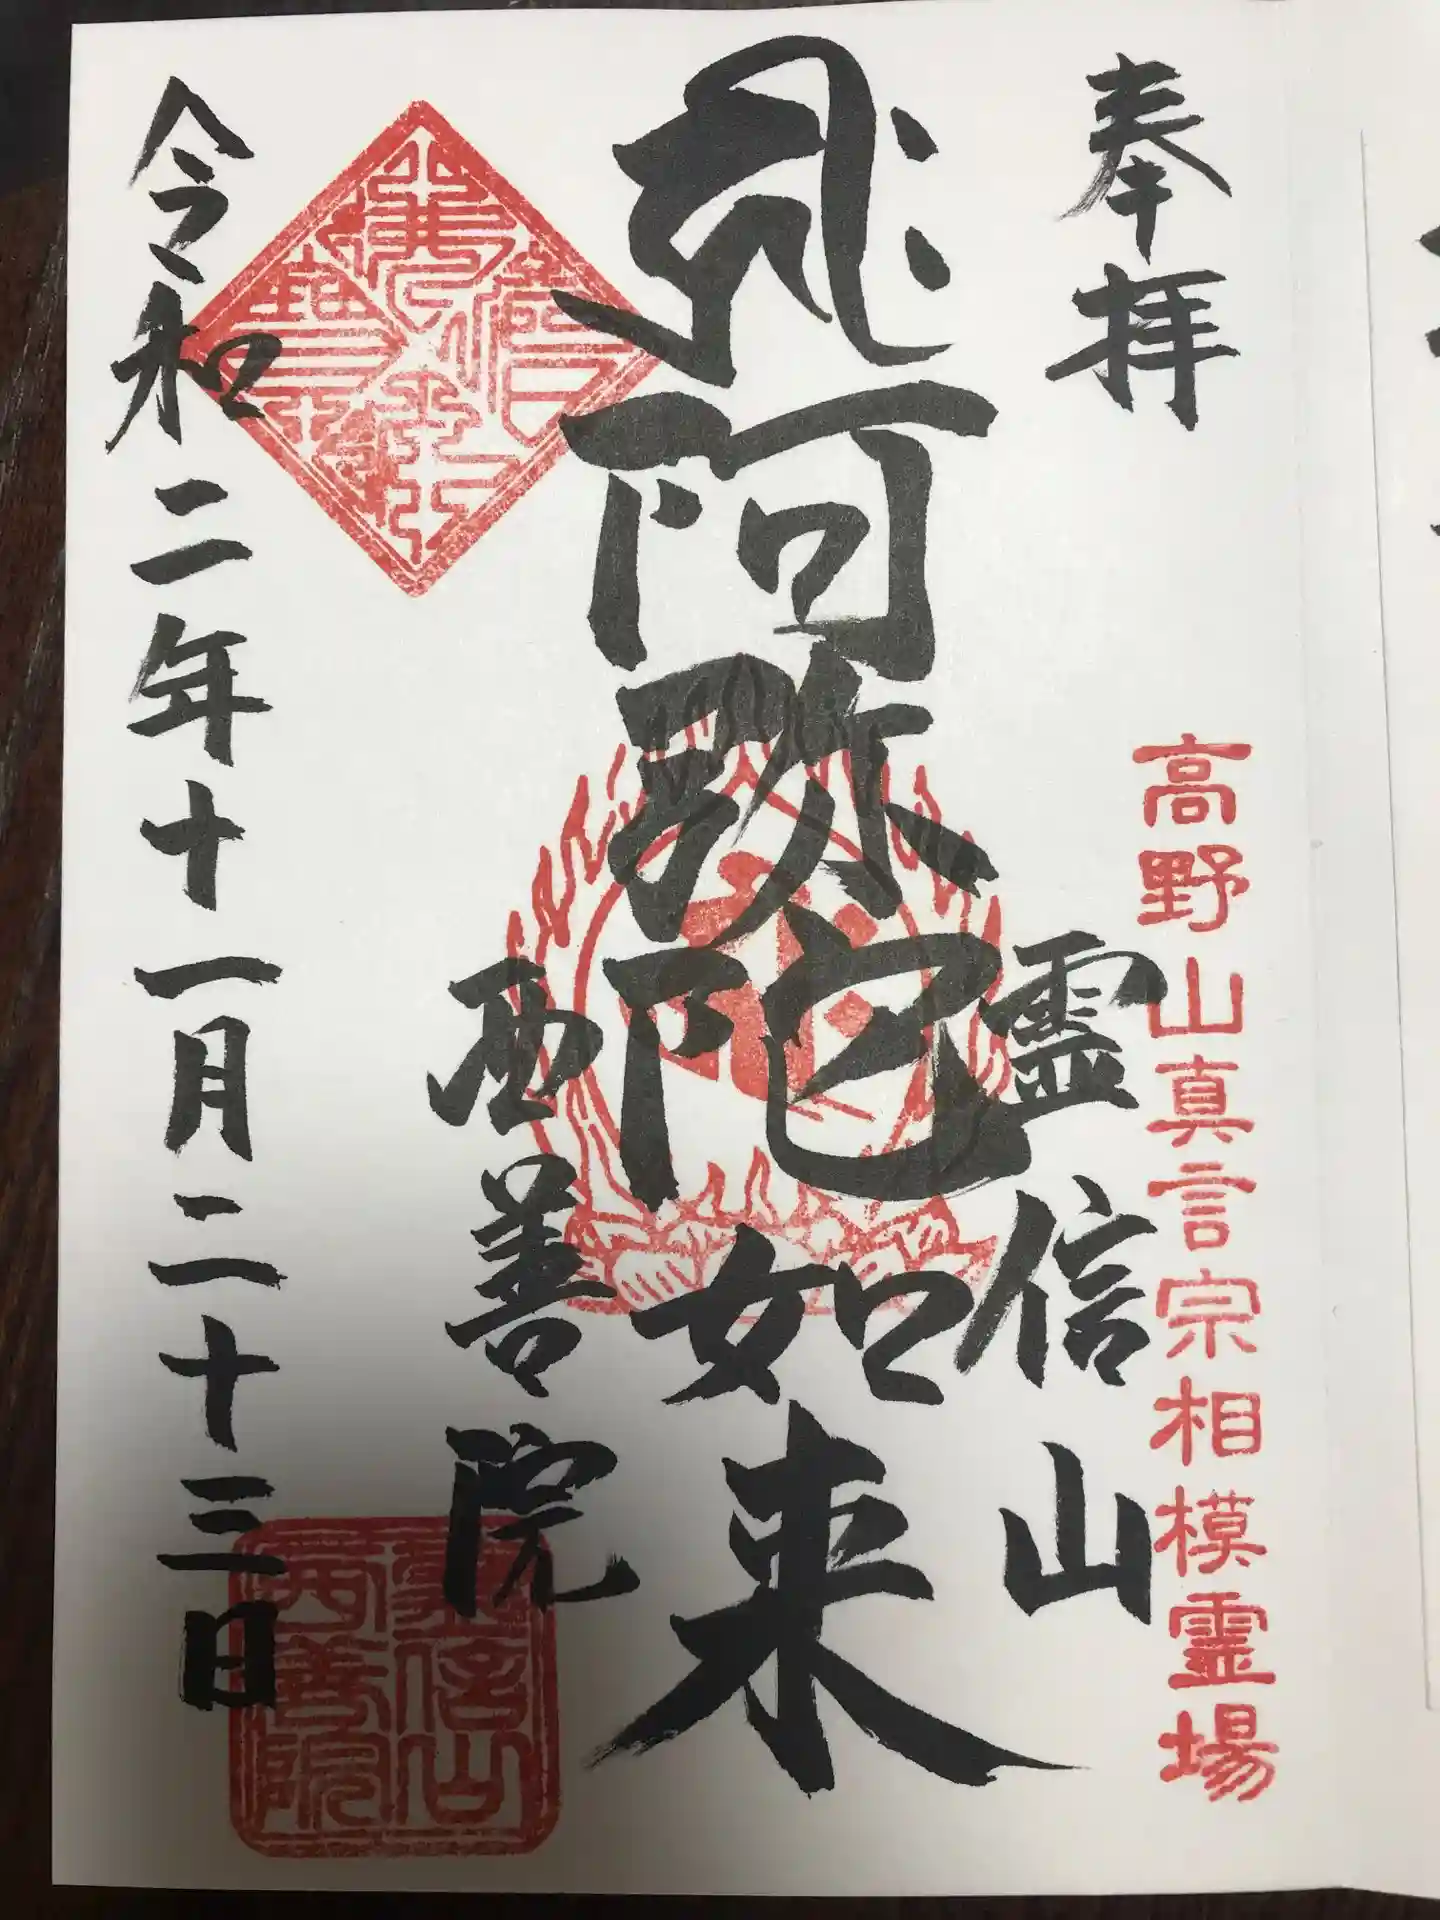 奉拝
高野山真言宗相模霊場
霊信山
阿弥陀如来
西善院
令和二年十一月二十三日
霊信山
西善院